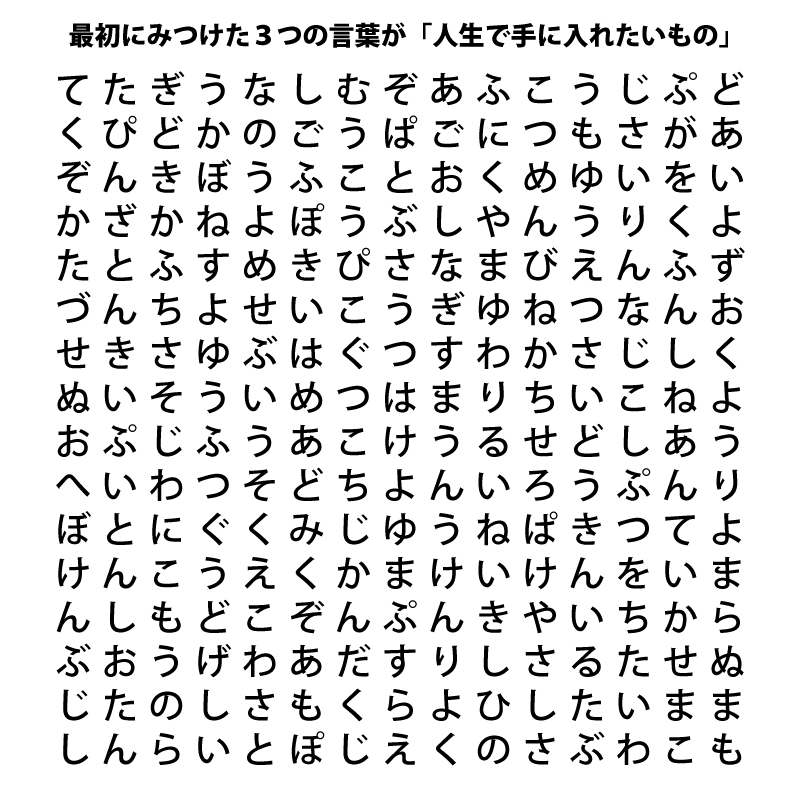 最初にみつけた３つの言葉が「人生で手に入れたいもの」
てたぎうなしむぞあふこうじぷど
くぴどかのごうぱごにつもさがあ
ぞんきぼうふことおくめゆいをい
かざかねよぽうぶしやんうりくよ
たとふすめきぴさなまびえんふず
づんちよせいこうぎゆねつなんお
せきさゆぶはぐつすわかさじしく
ぬいそういめつはまりちいこねよ
おぷじふうあこけうるせどしあう
へいわつそどちよんいろうぷんり
ぼとにぐくみじゆうねぱきつてよ
けんこうえくかまけいけんをいま
んしもどこぞんぷんきやいちから
ぶおうげわあだすりしさるたせぬ
じたのしさもくらよひしたいまま
しんらいとぽじえくのさぶわこも